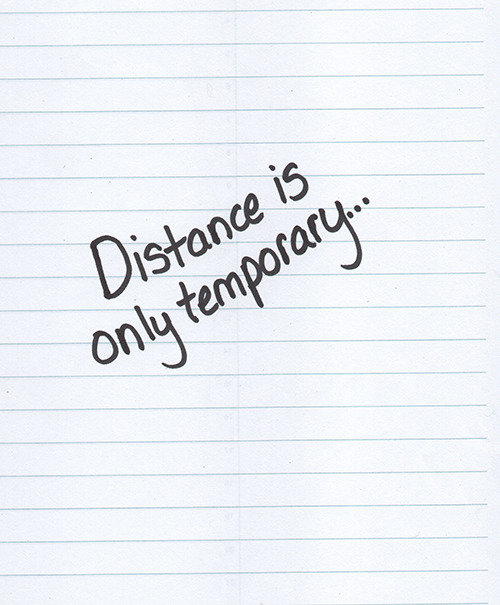 Distance is
only temporary...